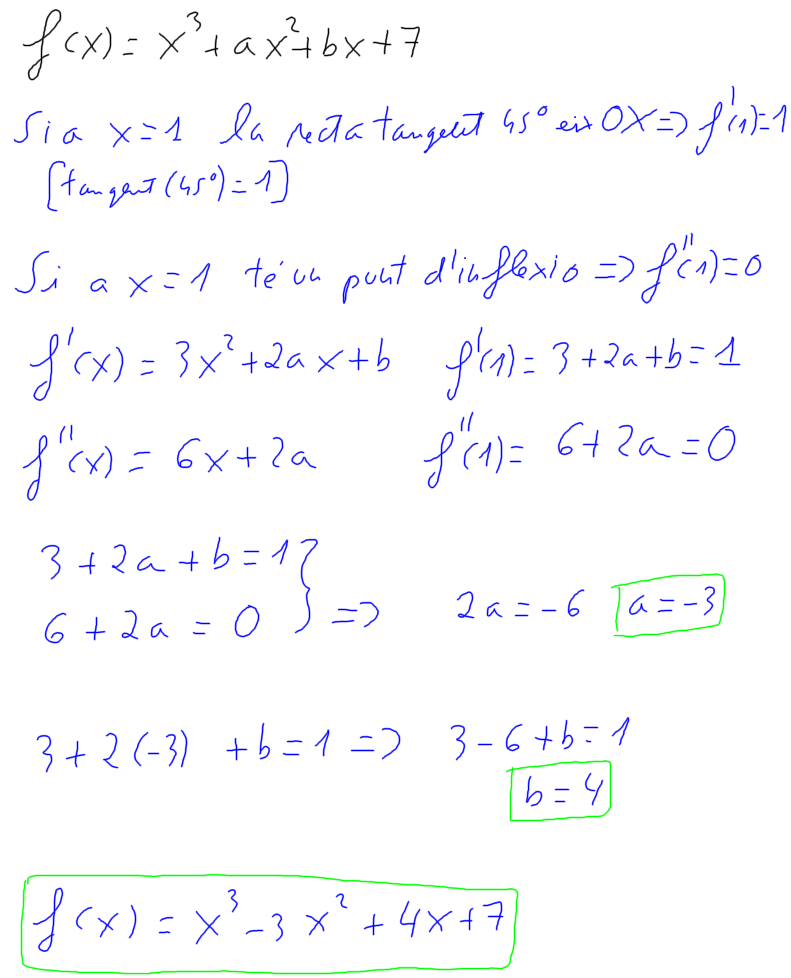 f(x) = x³ + ax² + bx + 7
Si a x=1 la recta tangent 45° eix OX => f'(1)=1
[tangent (45°) = 1]
Si a x=1 té un punt d'inflexio => f''(1)=0
f'(x) = 3x² + 2ax + b f'(1) = 3 + 2a + b = 1
f''(x) = 6x + 2a f''(1) = 6 + 2a = 0
3 + 2a + b = 1
6 + 2a = 0 } => 2a = -6 a = -3
3 + 2(-3) + b = 1 => 3 - 6 + b = 1
b = 4
f(x) = x³ - 3x² + 4x + 7